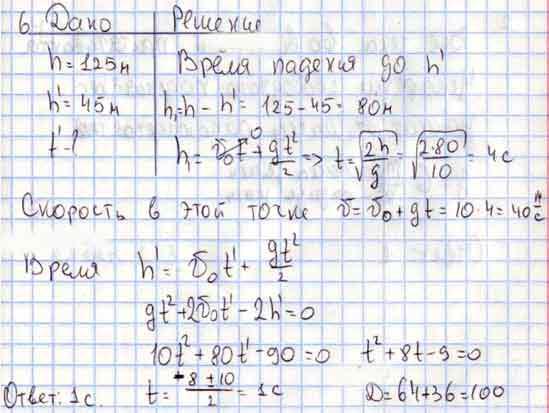 6. Дано | Решение
h = 125м Время падения до h'
h' = 45м h₁ = h - h' = 125 - 45 = 80м
t' - ? h₁ = v₀t + gt²/2 => t = √(2h/g) = √(2·80/10) = 4с
Скорость в этой точке v = v₀ + gt = 10·4 = 40 м/с
Время h' = v₀t' + gt²/2
gt² + 2v₀t' - 2h' = 0
10t² + 80t' - 90 = 0 t² + 8t - 9 = 0
Ответ: 1с. t = (-8 ± 10)/2 = 1с D = 64 + 36 = 100